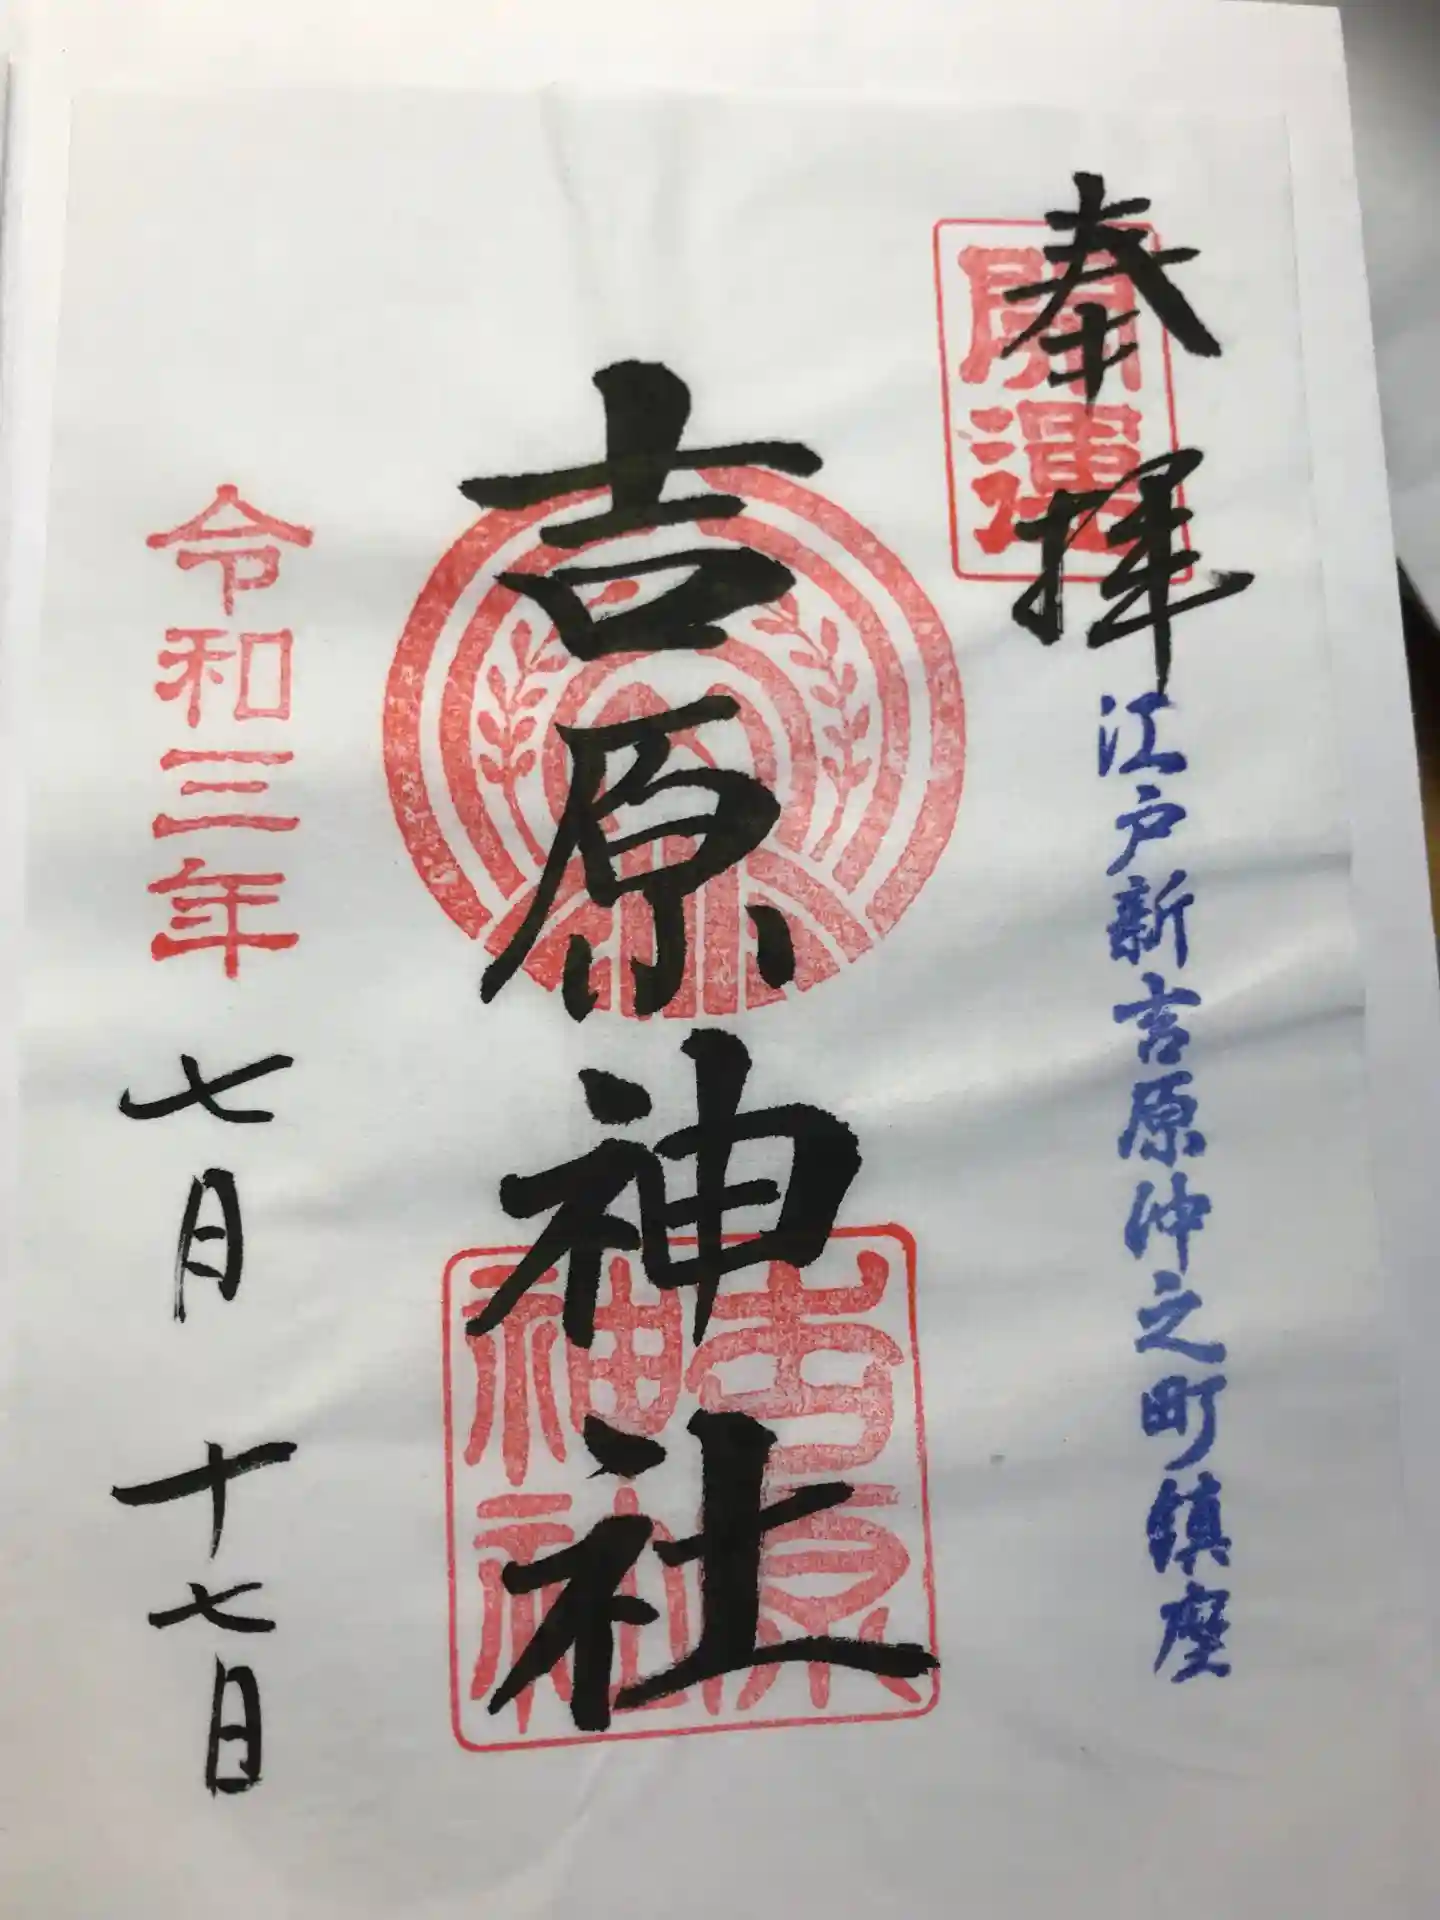 奉拝
開運
江戸新吉原沖之町鎮座
吉原神社
吉原
神社
令和三年
七月十七日